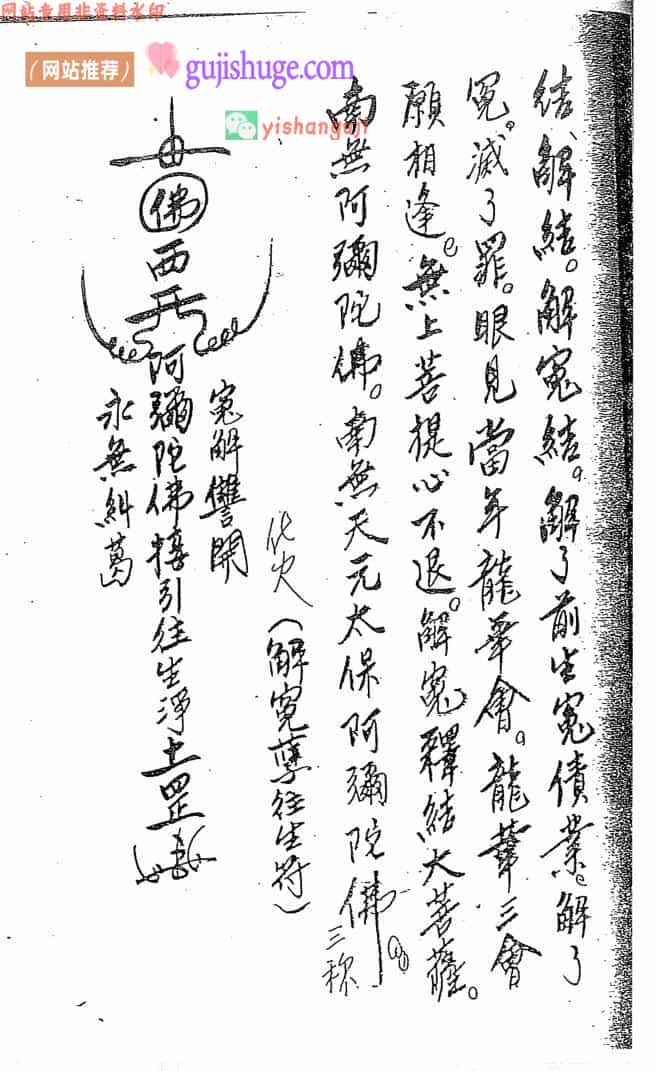 网站专用非资料水印
（网站推荐）
gujishuge.com
yishanguji
結、解結。解寃結。解了前生寃債業。解了
寃。滅了罪。眼見當年龍華會。龍華三會
願相逢。無上菩提心不退。解寃釋結大菩薩。
南無阿彌陀佛。南無天元太保阿彌陀佛。三称
化火（解寃孽往生符）
寃解讐開
佛西天阿彌陀佛接引往生淨土罡
永無糾葛